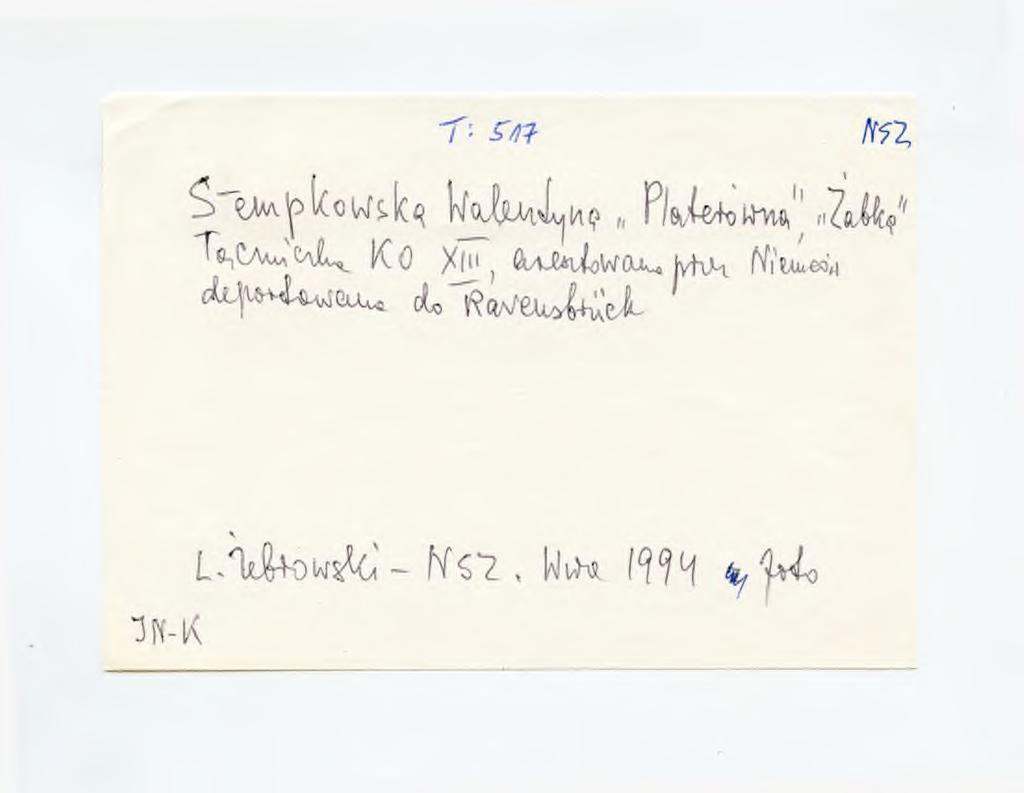 T: 517 NSZ
Stempkowska Walentyna „Platerówna”, „Żabka”
Łączniczka KO XIII, aresztowana przez Niemców
deportowana do Ravensbrück
L. Żebrowski – NSZ. Wwa 1994 foto
JN-K